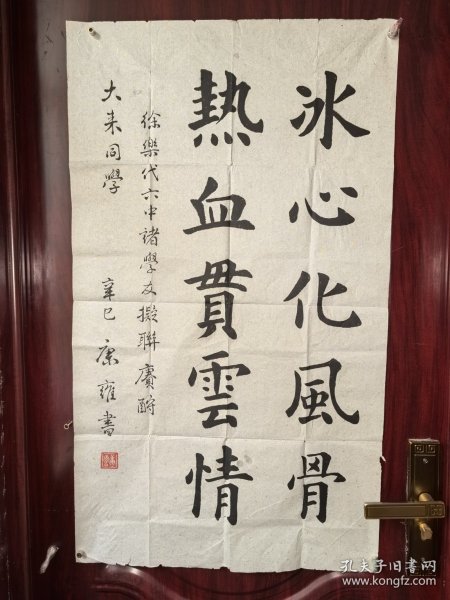 冰心化風骨
熱血貫雲情
徐樂代六中諸學友擬聯賡酧
大来同學
辛巳 康雍書
孔夫子旧书网
www.kongfz.com